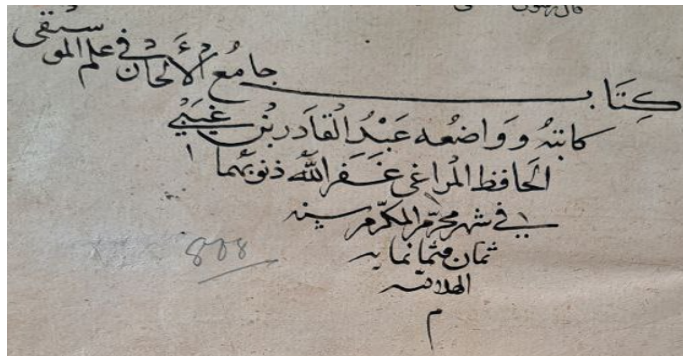 كِتَاب جامع الألحان في علم الموسيقى
كاتبه وواضعه عَبْدُ الْقَادر بْن غيبي
الحَافظ المُراغي غَفَر اللهُ ذنوبهما
في شهر محرّم المكرّم سنه
ثمان وثمانمايه
الهلاليه
م
808